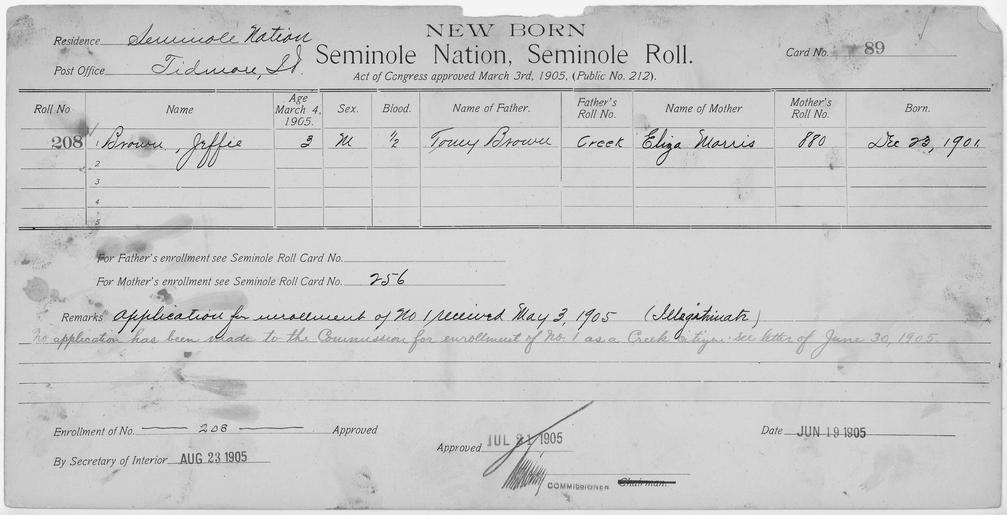 NEW BORN
Residence Seminole Nation
Seminole Nation, Seminole Roll.
Card No. 89
Post Office Tidmore, I.T.
Act of Congress approved March 3rd, 1905, (Public No. 212).
Roll No Name Age March 4, 1905. Sex. Blood. Name of Father. Father's Roll No. Name of Mother Mother's Roll No. Born.
208 1 Brown, Jeffie 3 M ½ Tomy Brown Creek Eliza Morris 880 Dec 23, 1901.
2
3
4
5
For Father's enrollment see Seminole Roll Card No.
For Mother's enrollment see Seminole Roll Card No. 256
Remarks Application for enrollment of No 1 received May 3, 1905 (Illegitimate)
No application has been made to the Commission for enrollment of No. 1 as a Creek citizen. See letter of June 30, 1905.
Enrollment of No. 208 Approved
Approved JUL 21 1905
Date JUN 19 1905
By Secretary of Interior AUG 23 1905
COMMISSIONER. Chairman.